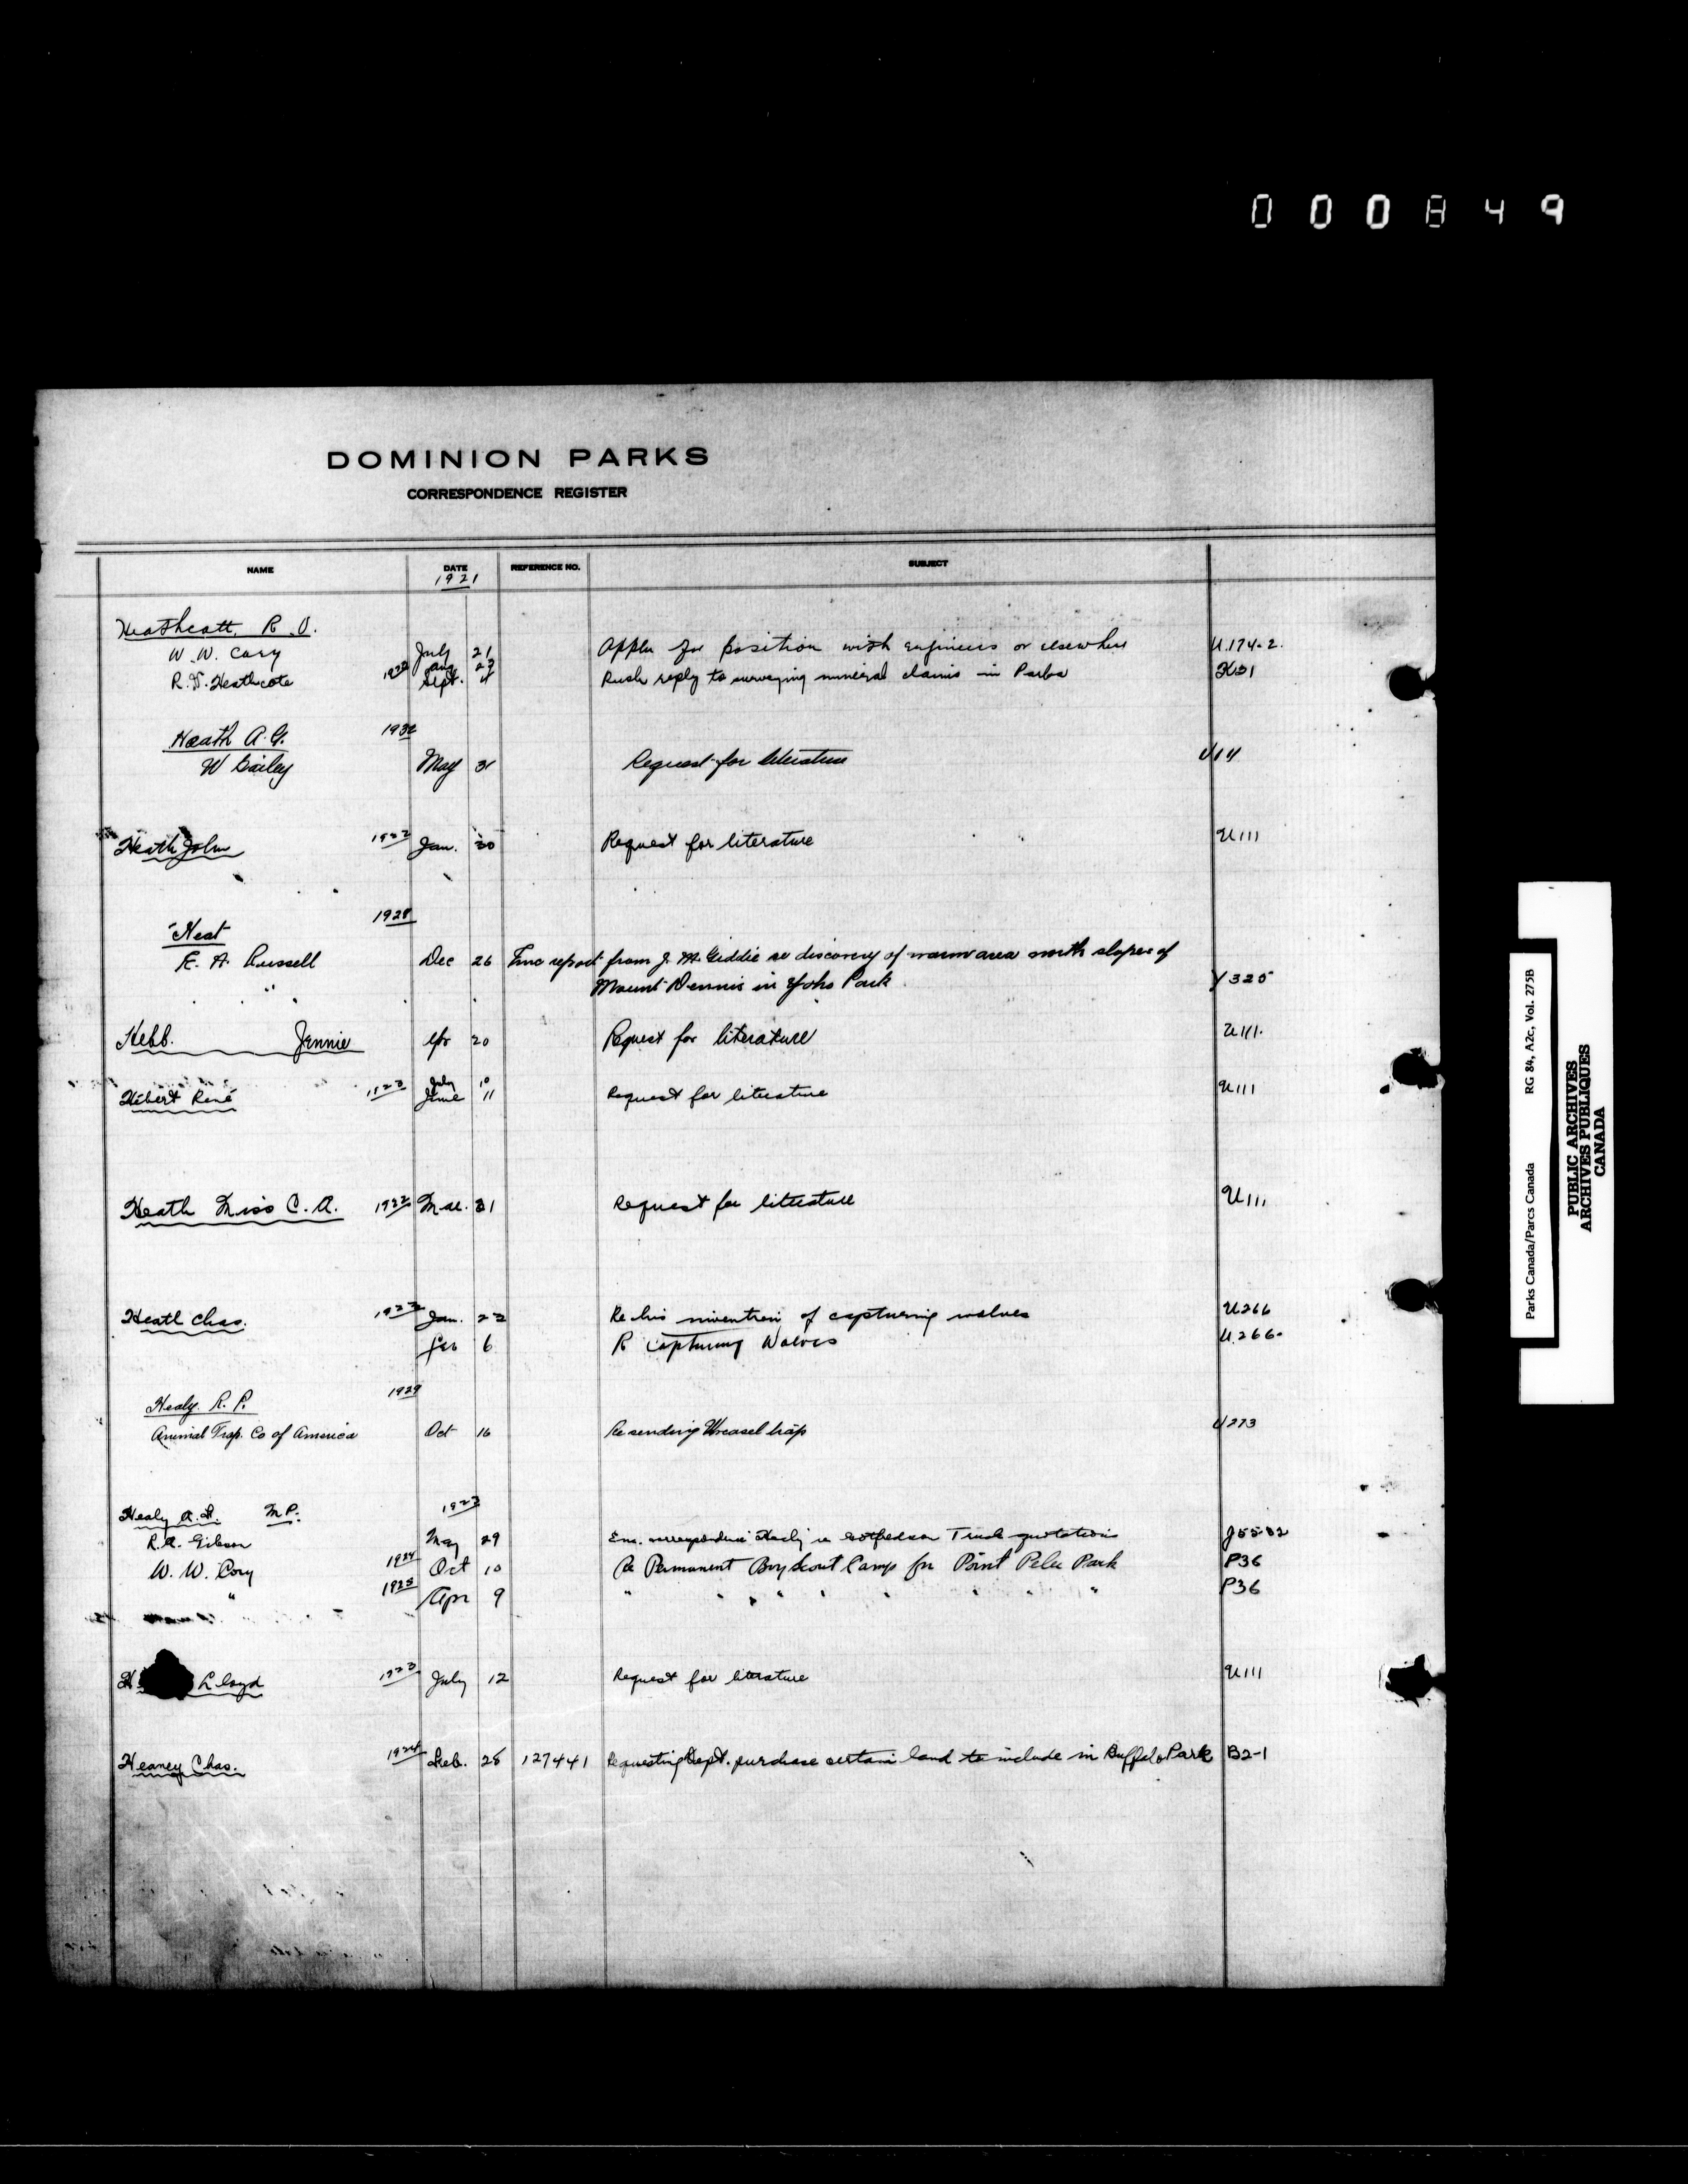 000849
DOMINION PARKS
CORRESPONDENCE REGISTER
NAME DATE REFERENCE NO. SUBJECT
1921
Heathcott, R. O.
W. W. Cory July 21 Applin for position with engineers or elsewhere U.174-2.
Aug 27
R. Heathcote Sept. 4 Rush reply to surveying mineral claims in Parks
Heath A. G. 1932
W Bailey May 31 Request for literature U11
Heath John 1922 Jan. 30 Request for literature U111
Heat 1928
E. A. Russell Dec 26 Enc report from J. M. Giddie re discovery of warm area north slopes of
Mount Dennis in Yoho Park Y325
Hebb. Jennie Apr 20 Request for literature U111.
July 10
Hébert René 1923 June 11 Request for literature U111
Heath Miss C. A. 1922 Mar. 31 Request for literature U111
Heath Chas. 1923 Jan. 22 Re his invention of capturing wolves U266
Feb 6 R capturing Wolves U.266.
Healy. R. P. 1929
Animal Trap. Co of America Oct 16 Re sending Weasel trap U273
Healy A. F. M.P. 1923
R. A. Gibson May 29 Enc. correspondence Healy re Truck quotation
W. W. Cory 1924 Oct 10 Re Permanent Boy Scout Camp for Point Pelee Park P36
" 1925 Apr 9 " " " " " " " " P36
H Lloyd 1923 July 12 Request for literature U111
Heaney Chas. 1924 Feb. 25 127441 Requesting Dept. purchase certain land to include in Buffalo Park B2-1
Parks Canada/Parcs Canada RG 84, A2c, Vol. 275B
PUBLIC ARCHIVES
ARCHIVES PUBLIQUES
CANADA